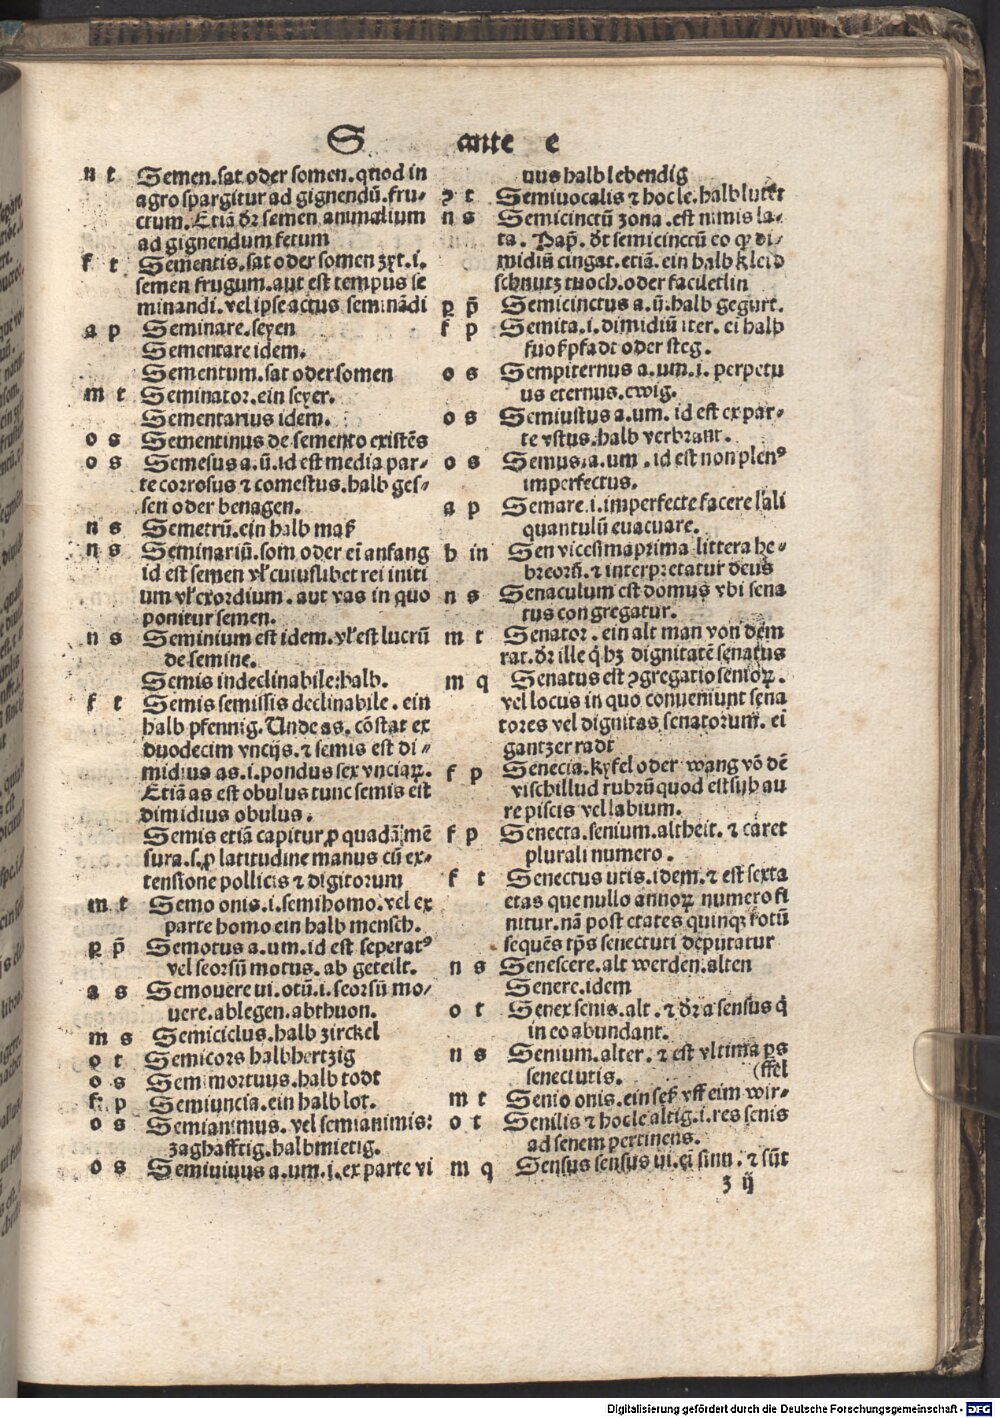 S ante e
n t Semen.sat oder somen.quod in
agro spargitur ad gignendū.fru⸗
ctum.Etiā dr̄ semen animalium
ad gignendum fetum
f t Sementis.sat oder somen zyt.i.
semen frugum.aut est tempus se
minandi.vel ipse actus seminādi
a p Seminare.seyen
Sementare idem.
Sementum.sat oder somen
m t Seminator.ein seyer.
Sementarius idem.
o s Sementinus de semento existēs
o s Semesus a.ū.id est media par⸗
te corrosus ⁊ comestus.halb ges⸗
sen oder benagen.
n s Semetrū.ein halb maß
n s Seminariū.som oder ei anfang
id est semen vł cuiuslibet rei initi
um vł exordium.aut vas in quo
ponitur semen.
n s Seminium est idem.vł est lucrū
de semine.
Semis indeclinabile:halb.
f t Semis semissis declinabile.ein
halb pfennig.Unde as.cōstat ex
duodecim vncijs.⁊ semis est di⸗
midius as.i.pondus sex vnciaꝝ.
Etiā as est obulus tunc semis est
dimidius obulus.
Semis etiā capitur ꝓ quadā mē
sura.s.ꝓ latitudine manus cū ex⸗
tensione pollicis ⁊ digitorum
m t Semo onis.i.semihomo.vel ex
parte homo ein halb mensch.
ꝝ p̄ Semotus a.um.id est seperatꝰ
vel seorsū motus.ab geteilt.
a s Semouere ui.otū.i.seorsū mo⸗
uere.ablegen.abthuon.
m s Semiciclus.halb zirckel
o t Semicors halbhertzig
o s Sem mortuus.halb todt
f p Semiuncia.ein halb lot.
o s Semianimus.vel semianimis:
zaghafftig.halbmietig.
o s Semiuiuus a.um.i.ex parte vi
uus halb lebendig
ꝛ t Semiuocalis ⁊ hoc le.halb lutet
n s Semicinctū zona.est nimis la⸗
ta.Pap̄.dr̄ semicinctū eo ꝙ di⸗
midiū cingat.etiā.ein halb kleid
schnutz tuoch.oder faciletlin
ꝝ p̄ Semicinctus a.ū.halb gegurt.
f p Semita.i.dimidiū iter.ei halb
fuoßpfadt oder steg.
o s Sempiternus a.um.i.perpetu
us eternus.ewig.
o s Semiustus a.um.id est ex par⸗
te vstus.halb verbrant.
o s Semus.a.um.id est non plenꝰ
imperfectus.
a p Semare.i.imperfecte facere l'ali
quantulū euacuare.
b in Sen vicesimaprima littera he⸗
breorū.⁊ interpretatur deus
n s Senaculum est domus vbi sena
tus congregatur.
m t Senator.ein alt man von dem
rat.dr̄ ille q̇ hꝫ dignitatē senatus
m q Senatus est ꝯgregatio senioꝝ.
vel locus in quo conueniunt sena
tores vel dignitas senatorum.ei
gantzer radt
f p Senecia.kyfel oder wang vō dē
vischillud rubrū quod est sub au
re piscis vel labium.
f p Senecta.senium.altheit.⁊ caret
plurali numero.
f t Senectus utis.idem.⁊ est sexta
etas que nullo annoꝝ numero fi
nitur.nā post etates quinqꝫ totū
sequēs tp̄s senectuti deputatur
n s Senescere.alt werden:alten
Senere.idem
o t Senex senis.alt.⁊ dr̄ a sensus q̇
in eo abundant.
n s Senium.alter.⁊ est vltima ps
senectutis. (ffel
m t Senio onis.ein seß vff eim wir⸗
o t Senilis ⁊ hoc le altig.i.res senis
ad senem pertinens.
m q Sensus sensus ui.ei sinn.⁊ sūt
z ij
Digitalisierung gefördert durch die Deutsche Forschungsgemeinschaft - DFG